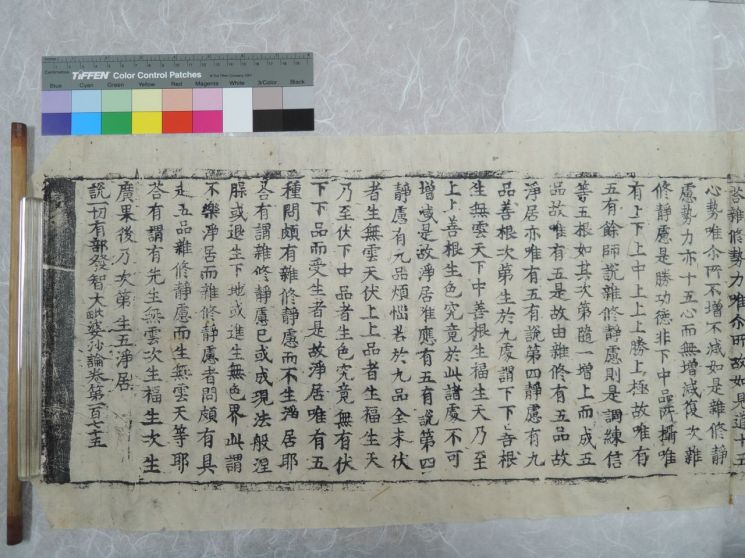 TIFFEN Color Control Patches
Blue Cyan Green Yellow Red Magenta White 3/Color Black
荅雜修勢力唯尒所故如見道十五
心勢唯尒所不增不減如是雜修靜
慮勢力亦十五心而無增減復次雜
修靜慮是勝功德非下中品所攝唯
有上下上中上上上勝上極故唯有
五有餘師說雜修靜慮則是調練信
等五根如其次第隨一增上而成五
品故唯有五是故由雜修有五品故
淨居亦唯有五有說第四靜慮有九
品善根次第生於九處謂下下善根
生無雲天下中善根生福生天乃至
上上善根生色究竟於此諸處不可
增減是故淨居唯應有五有說第四
靜慮有九品煩惱若於九品全未伏
者生無雲天伏上上品者生福生天
乃至伏下中品者生色究竟無有伏
下下品而受生者是故淨居唯有五
種問頗有雜修靜慮而不生淨居耶
荅有謂雜修靜慮已或成現法般涅
槃或退生下地或進生無色界此謂
不樂淨居而雜修靜慮者問頗有具
足五品雜修靜慮而生無雲天等耶
荅有謂有先生無雲次生福生次生
廣果後乃次第生五淨居
說一切有部發智大毗婆沙論卷第一百七十五